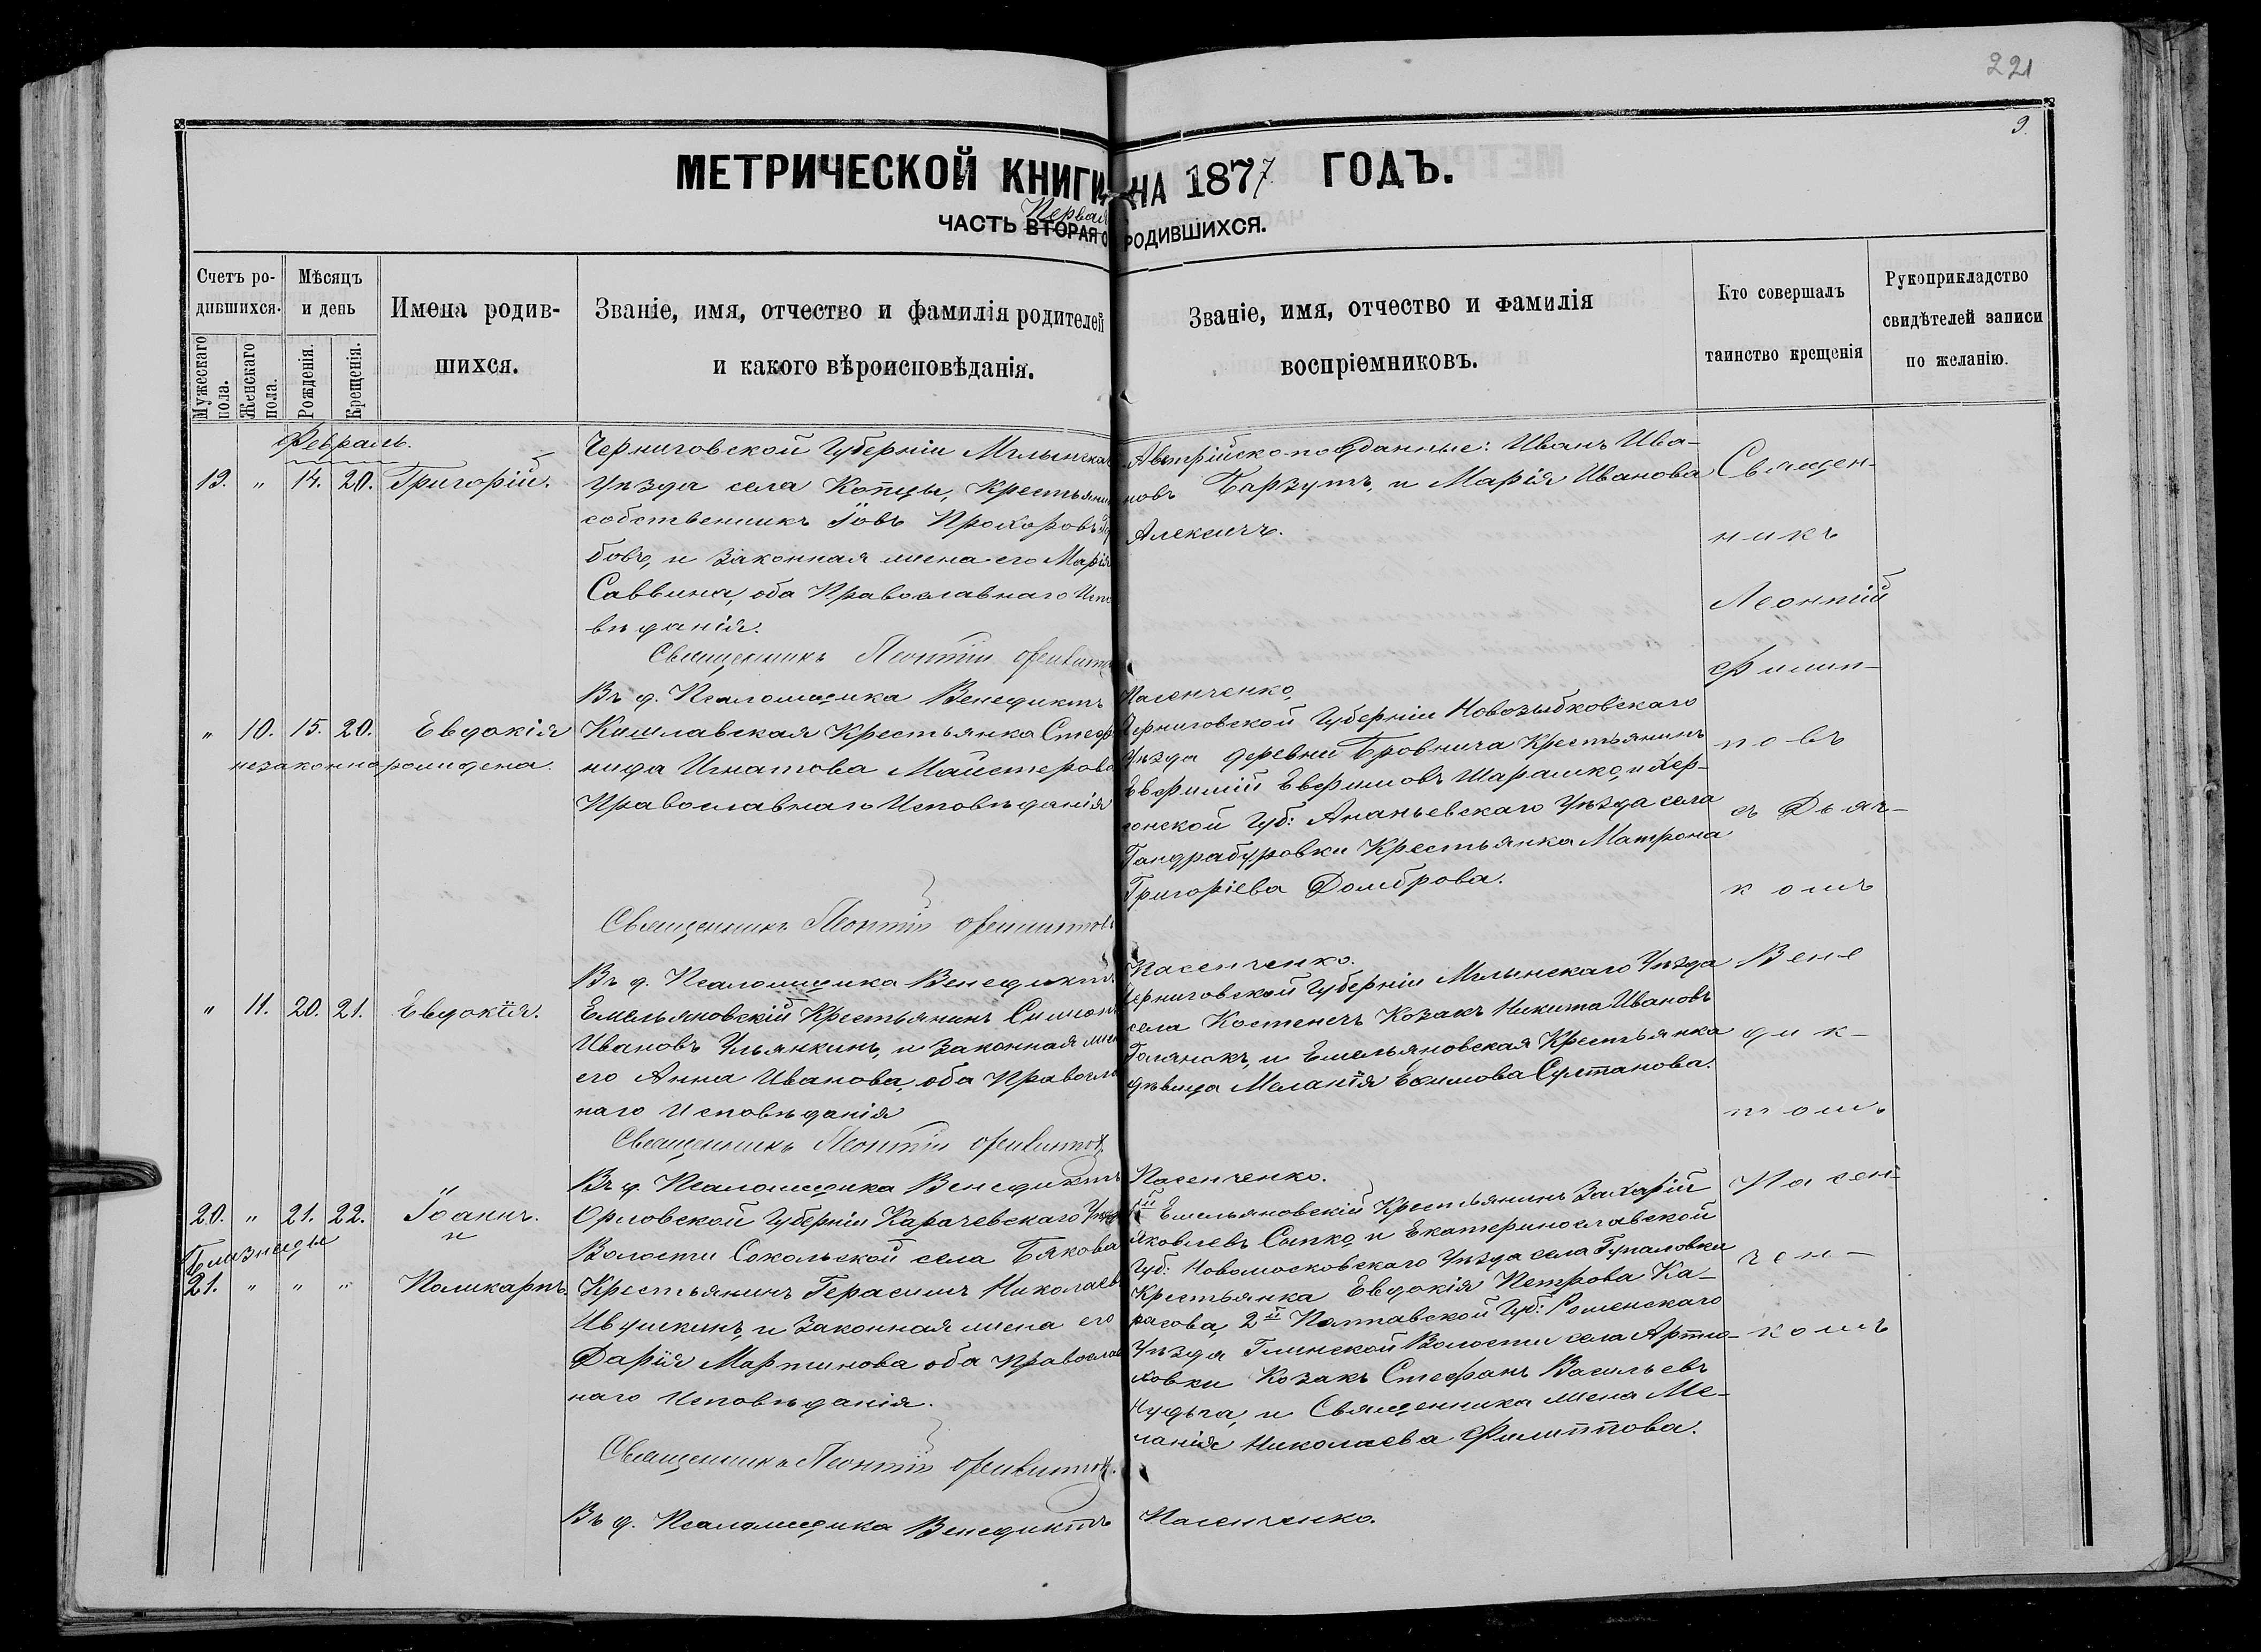 221
9.
МЕТРИЧЕСКОЙ КНИГИ НА 1877 ГОДЪ.
Первая
ЧАСТЬ ВТОРАЯ О РОДИВШИХСЯ.
Счетъ ро-
дившихся.
Мужескаго пола.
Женскаго пола.
Мѣсяцъ
и день
Рожденія.
Крещенія.
Имена родив-
шихся.
Званіе, имя, отчество и фамилія родителей
и какого вѣроисповѣданія.
Званіе, имя, отчество и фамилія
воспріемниковъ.
Кто совершалъ
таинство крещенія
Рукоприкладство
свидѣтелей записи
по желанію.
Февраль.
19. " 14. 20. Григорій.
Черниговской Губерніи Мглинска
Уѣзда села Копцы, Крестьянин
собственникъ Іовъ Прохоровъ
бовъ, и законная жена его Марія
Саввина, оба Православнаго Испо
вѣданія.
Священникъ Леонтій Филиппов
Въ д. Псаломщика Венедиктъ Пасенченко,
Австрійско-подданные: Иванъ Ива-
новъ Барзутъ, и Марія Иванова
Алексичъ.
" 10. 15. 20. Евдокія
незаконнорождена.
Кишлавская Крестьянка Стеф
нида Игнатова Майстерова
Православнаго Исповѣданія
Священникъ Леонтій Филиппов
Въ д. Псаломщика Венедиктъ Пасенченко.
Черниговской Губерніи Новозыбковскаго
Уѣзда деревни Бровнича Крестьянинъ
Евфимій Евфимовъ Шарашко, и Хер-
сонской Губ: Ананьевскаго Уѣзда села
Гандрабуровки Крестьянка Матрона
Григоріева Домброва.
" 11. 20. 21. Евдокія.
Емельяновскій Крестьянинъ Симеон
Ивановъ Ульянкинъ, и законная жен
его Анна Иванова, оба Правосла
наго Исповѣданія
Священникъ Леонтій Филиппов
Въ д. Псаломщика Венедиктъ Пасенченко.
Черниговской Губерніи Мглинскаго Уѣзда
села Костенечъ Козакъ Никита Ивановъ
Голянокъ, и Емельяновская Крестьянка
дѣвица Меланія Екимова Султанова.
20. " 21. 22. Іоаннъ.
Близнецы и
21. " " " Поликарпъ.
Орловской Губерніи Карачевскаго Уѣзд
Волости Сокольской села Бякова
Крестьянинъ Герасимъ Николаев
Ивушкинъ, и законная жена его
Дарія Мартинова оба Православ
наго Исповѣданія.
Священникъ Леонтій Филиппов.
Въ д. Псаломщика Венедиктъ Пасенченко.
Емельяновскій Крестьянинъ Захарій
Яковлевъ Сыпко, и Екатеринославской
Губ: Новомосковскаго Уѣзда села Гупаловки
Крестьянка Евдокія Петрова Ка-
расова, 2й Полтавской Губ: Роменскаго
Уѣзда Глинской Волости села Артю-
ховки Козакъ Стефанъ Васильевъ
Нудьга, и Священника жена Ме-
ланія Николаева Филиппова.
Священ-
никъ
Леонтій
Филип-
повъ
съ Дьяч-
комъ
Вене
дик-
томъ
Пасен-
чен-
комъ